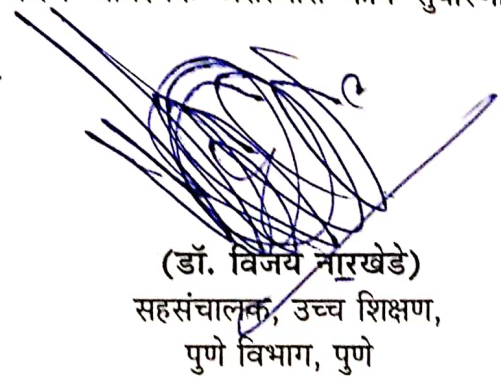 (डॉ. विजय नारखेडे)
सहसंचालक, उच्च शिक्षण,
पुणे विभाग, पुणे